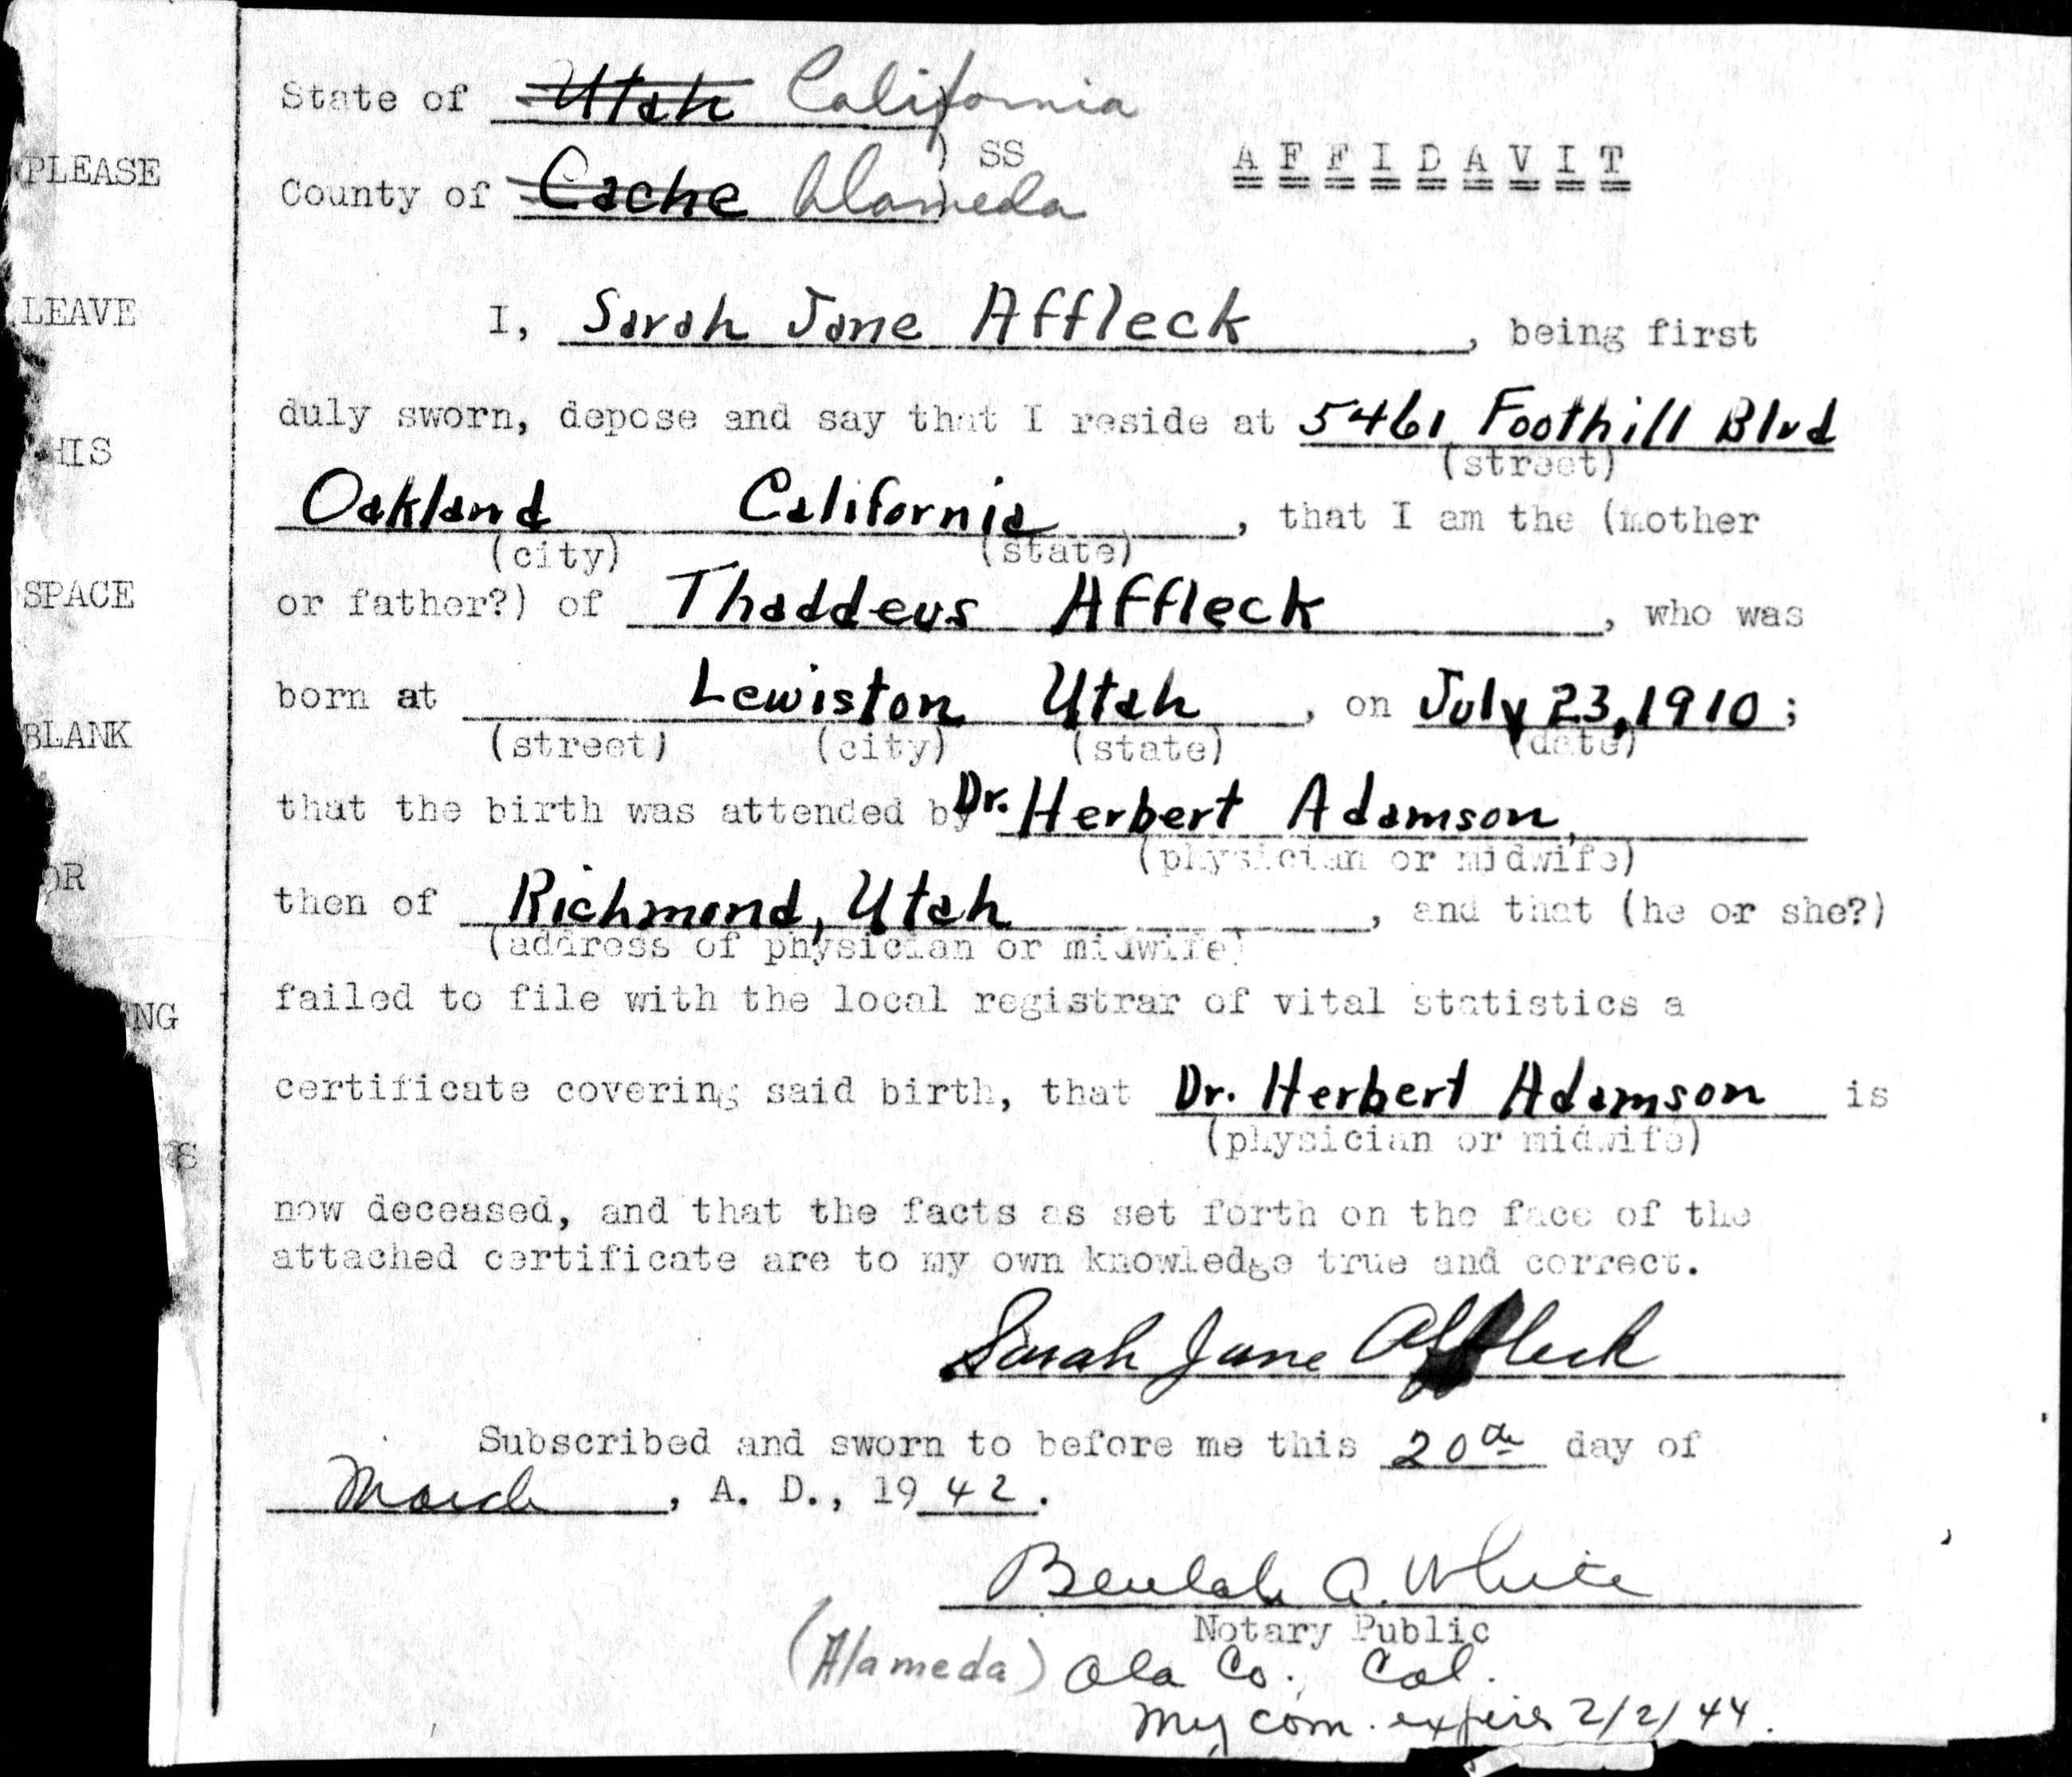 State of Utah California
) SS
County of Cache Alameda
AFFIDAVIT
I, Sarah Jane Affleck, being first
duly sworn, depose and say that I reside at 5461 Foothill Blvd
(street)
Oakland California, that I am the (mother
(city) (state)
or father?) of Thaddeus Affleck, who was
born at Lewiston Utah, on July 23, 1910;
(street) (city) (state) (date)
that the birth was attended by Dr. Herbert Adamson,
(physician or midwife)
then of Richmond, Utah, and that (he or she?)
(address of physician or midwife)
failed to file with the local registrar of vital statistics a
certificate covering said birth, that Dr. Herbert Adamson is
(physician or midwife)
now deceased, and that the facts as set forth on the face of the
attached certificate are to my own knowledge true and correct.
Sarah Jane Affleck
Subscribed and sworn to before me this 20th day of
March, A. D., 19 42.
Beulah A. White
Notary Public
(Alameda) Ala Co., Cal.
My com. expires 2/2/44.
PLEASE
LEAVE
HIS
SPACE
BLANK
OR
NG
S